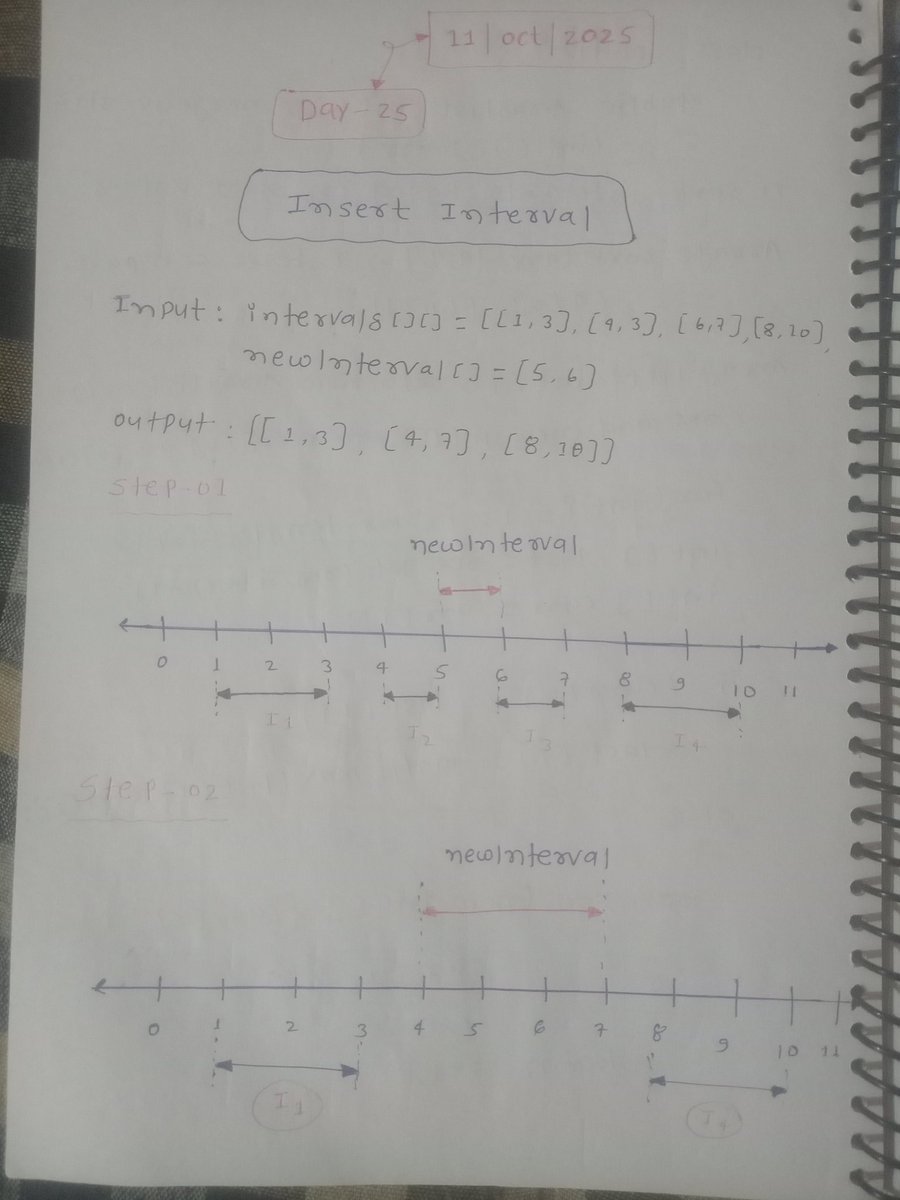 11|oct|2025
Day-25
Insert Interval
Input: intervals[][] = [[1,3], [4,3], [6,7],[8,10],
newInterval[] = [5,6]
output: [[1,3], [4,7], [8,10]]
Step-01
newInterval
0 1 2 3 4 5 6 7 8 9 10 11
I1 I2 I3 I4
Step-02
newInterval
0 1 2 3 4 5 6 7 8 9 10 11
I1 I4